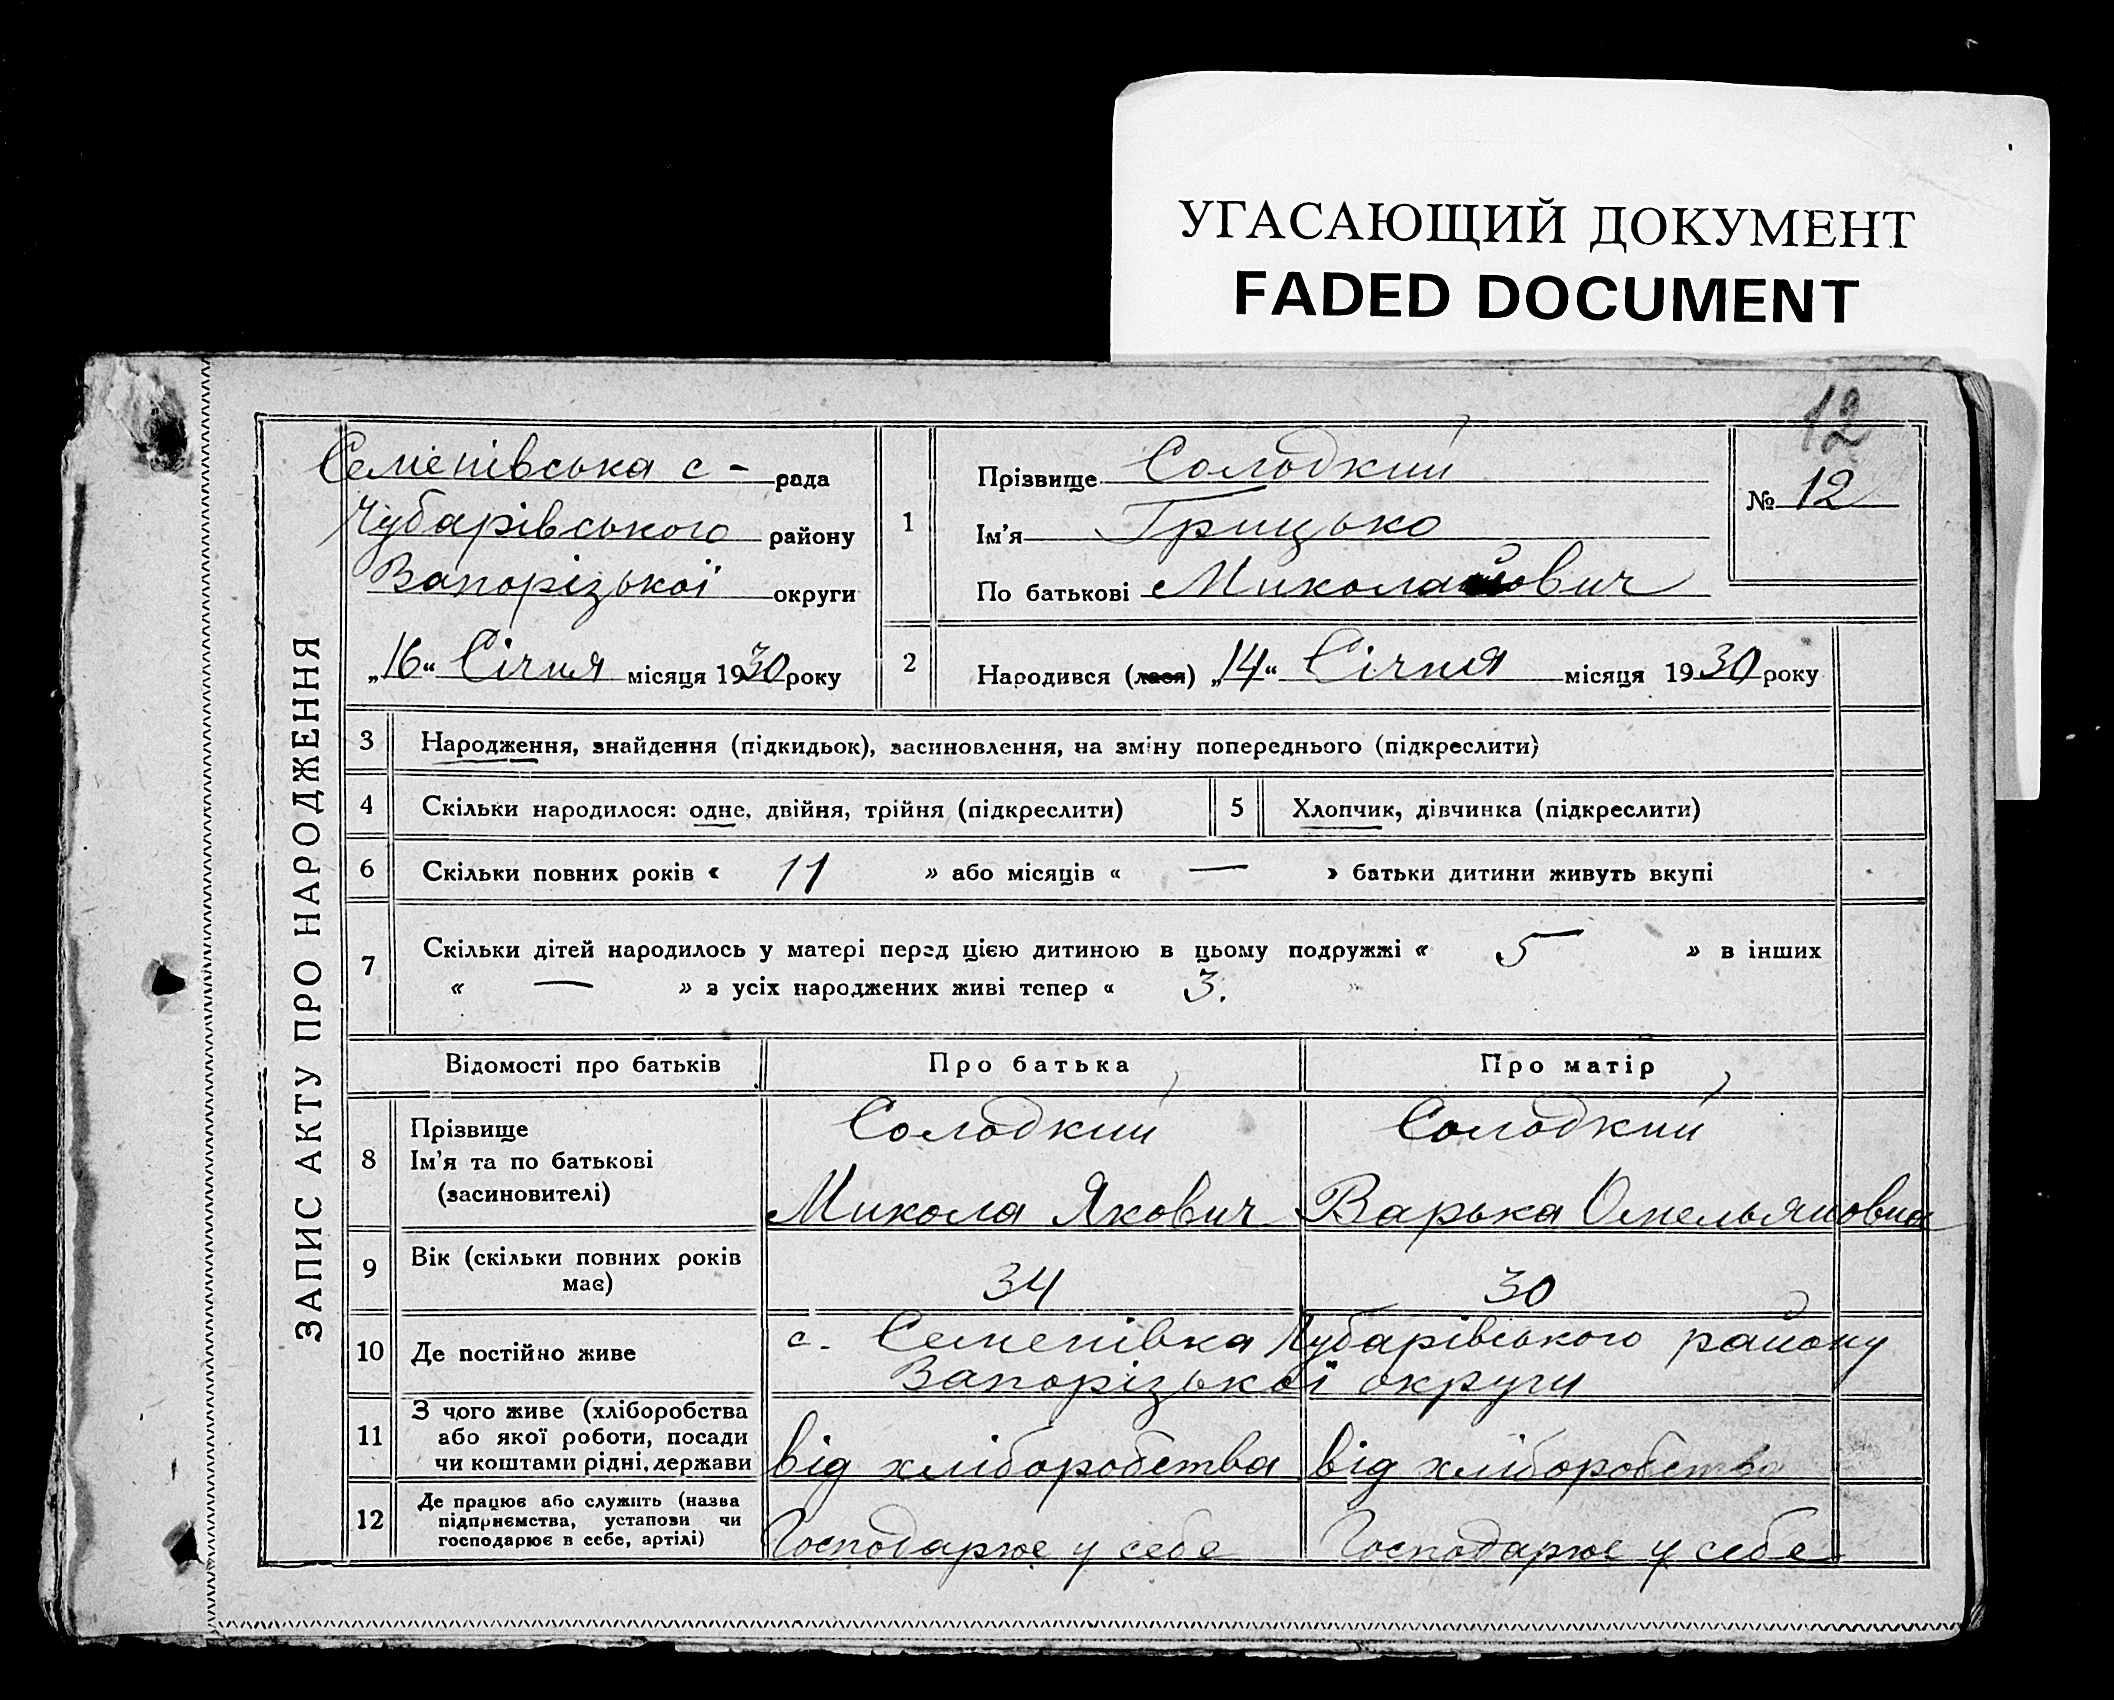 УГАСАЮЩИЙ ДОКУМЕНТ
FADED DOCUMENT
12
ЗАПИС АКТУ ПРО НАРОДЖЕННЯ
Семенівська с - рада
Чубарівського району
Запорізької округи
„16“ Січня місяця 1930 року
1 Прізвище Солодкий
Ім'я Грицько
По батькові Миколайович
№ 12
2 Народився (лася) „14“ Січня місяця 1930 року
3 Народження, знайдення (підкидьок), засиновлення, на зміну попереднього (підкреслити)
4 Скільки народилося: одне, двійня, трійня (підкреслити) 5 Хлопчик, дівчинка (підкреслити)
6 Скільки повних років « 11 » або місяців « — » батьки дитини живуть вкупі
7 Скільки дітей народилось у матері перед цією дитиною в цьому подружжі « 5 » в інших
« — » з усіх народжених живі тепер « 3. »
Відомості про батьків Про батька Про матір
8 Прізвище Солодкий Солодкий
Ім'я та по батькові
(засиновителі) Микола Якович Варька Омельяновна
9 Вік (скільки повних років
має) 34 30
10 Де постійно живе с. Семенівка Чубарівського району
Запорізької округи
11 З чого живе (хліборобства
або якої роботи, посади
чи коштами рідні, держави від хліборобства від хліборобства
12 Де працює або служить (назва
підприємства, установи чи
господарює в себе, артілі) Господарює у себе Господарює у себе